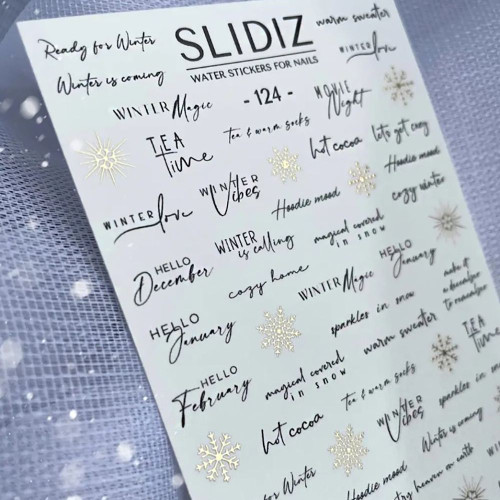 Ready for Winter
SLIDIZ
warm sweater
Winter is coming
WATER STICKERS FOR NAILS
WINTER love
WINTER Magic
- 124 -
MOVIE
Night
TEA
Time
tea & warm socks
hot cocoa
lets get cozy
WINTER love
WINTER
Vibes
Hoodie mood
Hoodie mood
cozy winter
HELLO
December
WINTER
is calling
magical covered
in snow
HELLO
January
cozy home
WINTER Magic
make it
a december
to remember
HELLO
January
sparkles in snow
warm sweater
TEA
Time
HELLO
February
magical covered
in snow
tea & warm socks
sparkles in
hot cocoa
WINTER
Vibes
Winter is coming
for Winter
Hoodie mood
heaven on earth